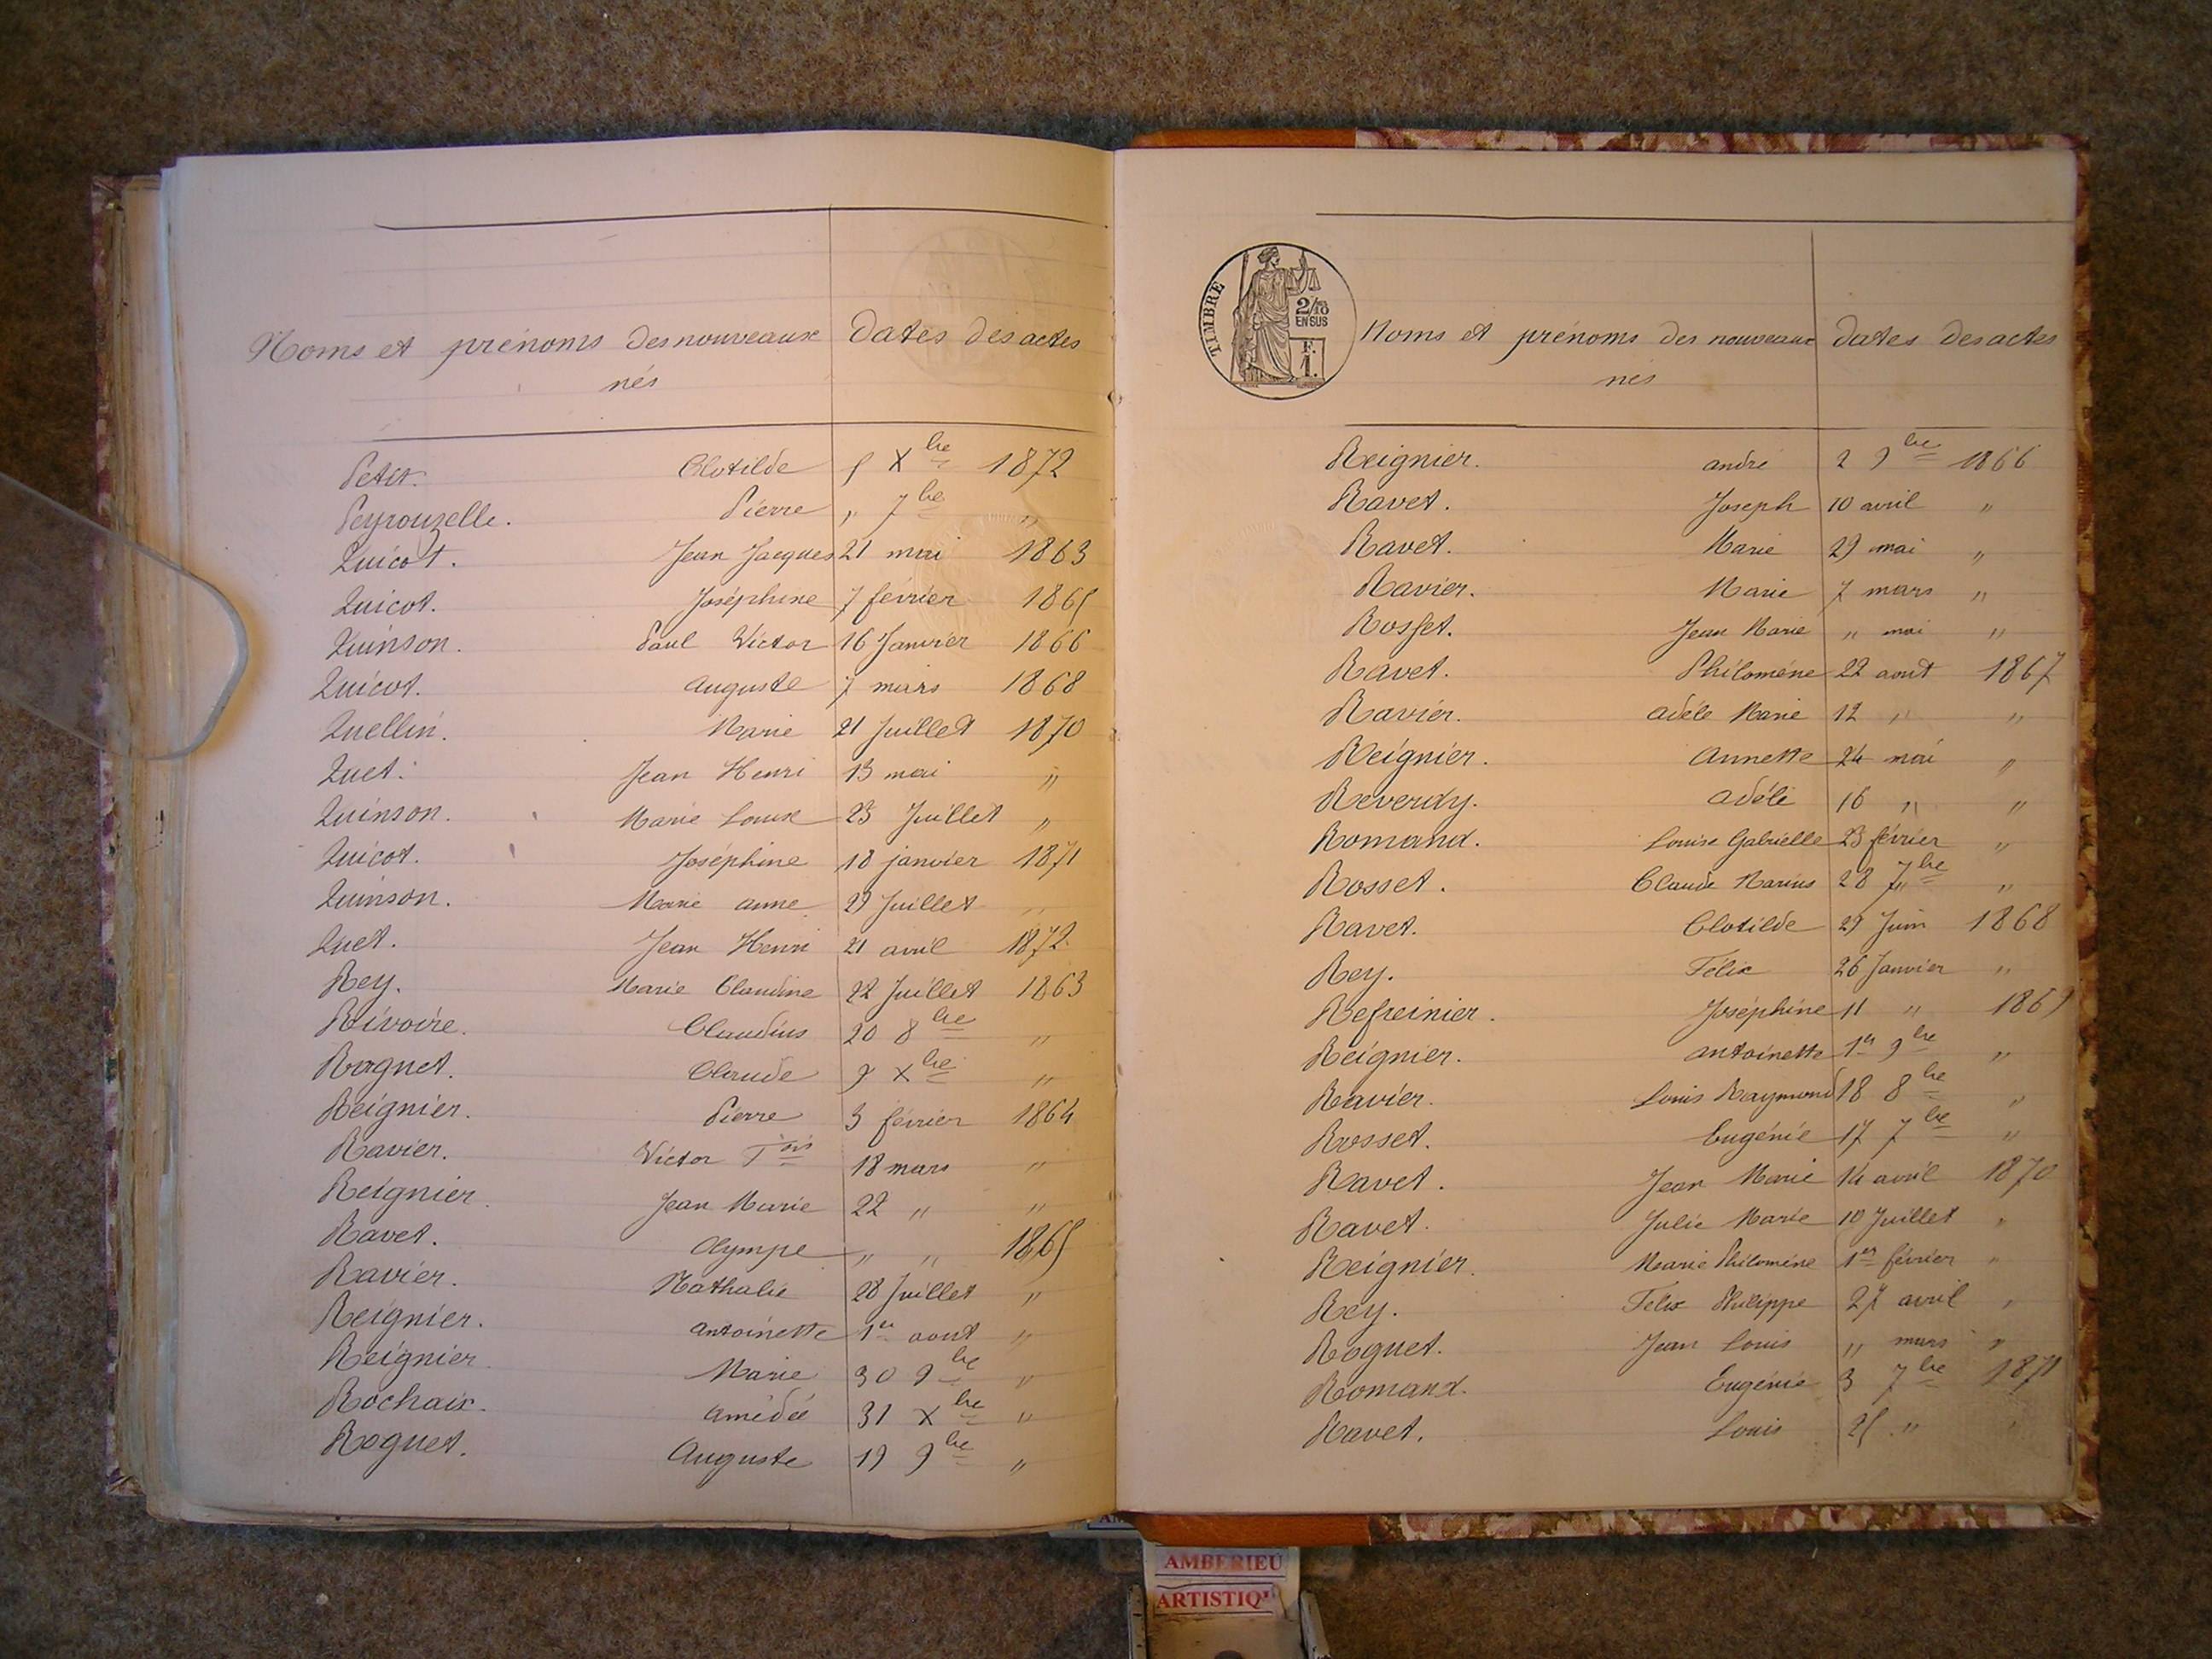 Noms et prénoms des nouveaux dates des actes
nés
Petit. Clotilde 5 Xbre 1872
Peyrouzelle. Pierre „ 7bre „
Quicot. Jean Jacques 21 mai 1863
Quicot. Joséphine 7 février 1865
Quinson. Paul Victor 16 Janvier 1866
Quicot. Auguste 7 mars 1868
Quellin. Marie 21 Juillet 1870
Quet. Jean Henri 13 mai „
Quinson. Marie Louise 23 Juillet „
Quicot. Joséphine 18 janvier 1871
Quinson. Marie anne 29 Juillet „
Quet. Jean Henri 21 avril 1872
Rey. Marie Claudine 22 Juillet 1863
Rivoire. Claudius 20 8bre „
Roguet. Claude 9 Xbre „
Reignier. Pierre 3 février 1864
Ravier. Victor 18 mars „
Reignier. Jean Marie 22 „ „
Ravet. Olympe „ „ 1865
Ravier. Nathalie 28 Juillet „
Reignier. antoinette 1er aout „
Reignier Marie 30 9bre „
Rochaix. amédée 31 Xbre „
Roguet. Auguste 19 9bre „
TIMBRE
2/10
EN SUS
F.
1.
Noms et prénoms des nouveaux dates des actes
nés
Reignier. andré 2 9bre 1866
Ravet. Joseph 10 avril „
Ravet. Marie 29 mai „
Ravier. Marie 7 mars „
Rosset. Jean Marie „ mai „
Ravet. Philomène 22 aout 1867
Ravier. adèle Marie 12 „ „
Reignier. Annette 24 mai „
Reverdy. adèle 16 „ „
Romand. Louise Gabrielle 23 février „
Rosset. Claude Marius 28 7bre „
Ravet. Clotilde 29 Juin 1868
Rey. Félix 26 Janvier „
Refreinier. Joséphine 11 „ 1869
Reignier. antoinette 1er 9bre „
Ravier. Louis Raymond 18 8bre „
Rosset. Eugénie 17 7bre „
Ravet. Jean Marie 14 avril 1870
Ravet. Julie Marie 10 Juillet „
Reignier. Marie Philomène 1er février „
Rey. Felix Philippe 27 avril „
Roguet. Jean Louis „ mars „
Romand. Eugénie 3 7bre 1871
Ravet. Louis 25 „ „
AMBERIEU
ARTISTIQ